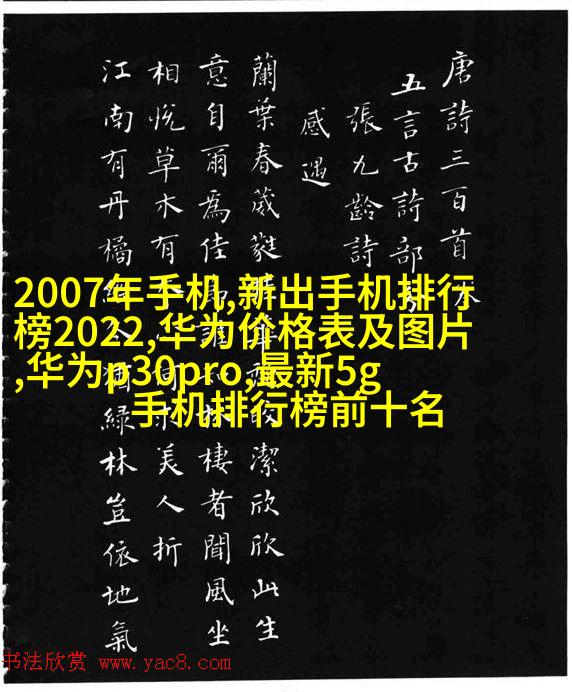 唐詩三百首
五言古詩部
張九齡詩
感遇
蘭葉春葳蕤潔欣欣此生
意自爾為佳棲者聞風坐
相悅草木有美人折
江南有丹橘綠林豈依地氣
2007年手机,新出手机排行
榜2022,华为价格表及图片
,华为p30pro,最新5g
手机排行榜前十名
书法欣赏 www.yac8.com